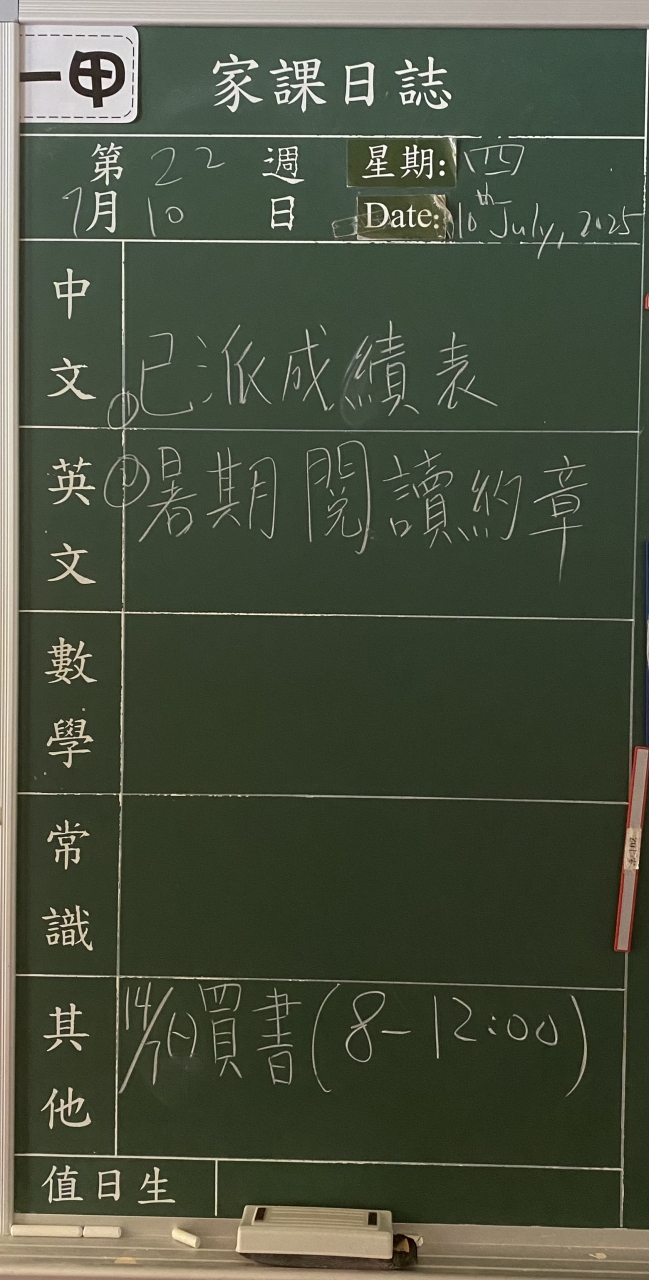 一甲
家課日誌
第 22 週 星期: 四
7月 10 日 Date: 10th July, 2025
中文
① 已派成績表
英文
② 暑期閱讀約章
數學
常識
其他
14/7(一)買書(8-12:00)
值日生